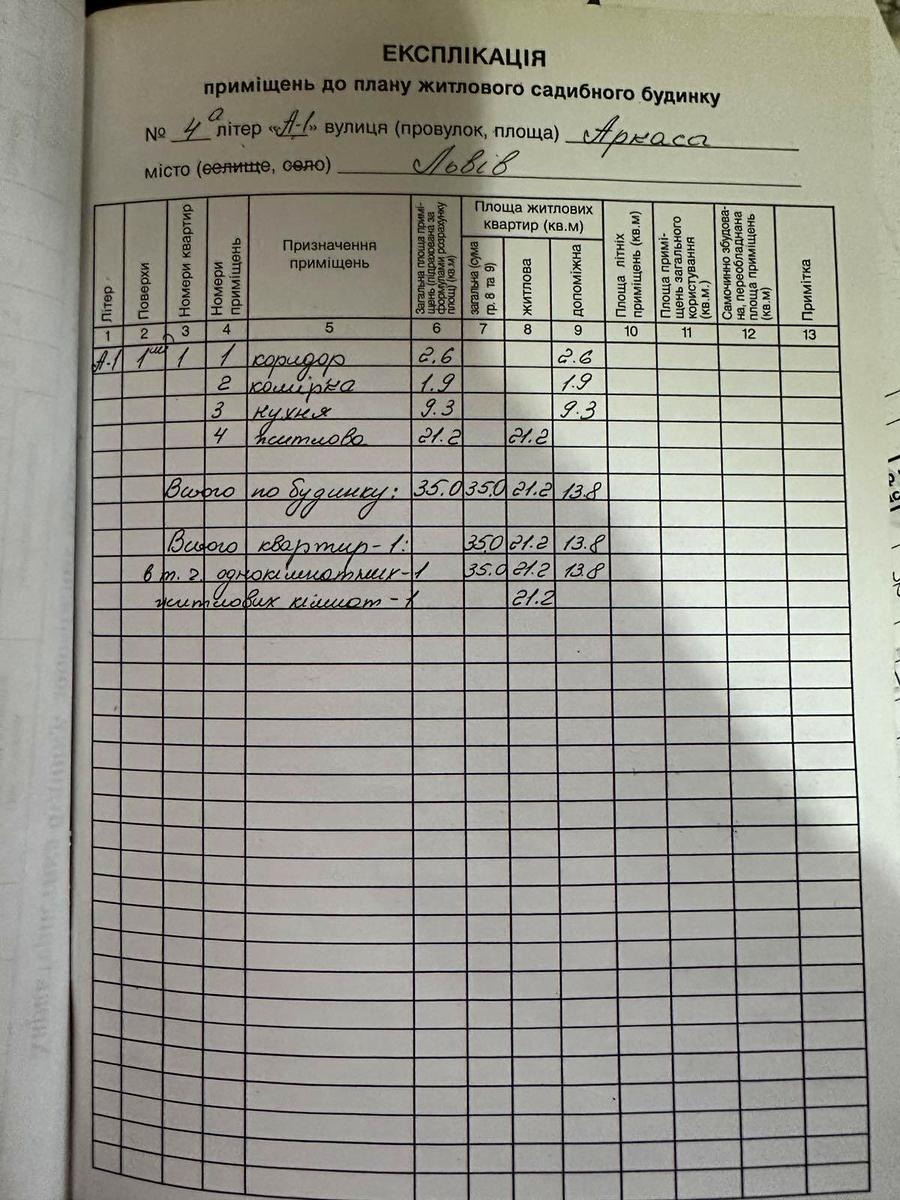 ЕКСПЛІКАЦІЯ
приміщень до плану житлового садибного будинку
№ 4а літер «А-І» вулиця (провулок, площа) Аркаса
місто (селище, село) Львів
Літер Поверхи Номери квартир Номери приміщень Призначення приміщень Загальна площа приміщень (підрахована за формулами розрахунку площ) (кв.м) Площа житлових квартир (кв.м) загальна (сума гр. 8 та 9) житлова допоміжна Площа літніх приміщень (кв.м) Площа приміщень загального користування (кв.м.) Самочинно збудована, переобладнана площа приміщень (кв.м) Примітка
1 2 3 4 5 6 7 8 9 10 11 12 13
А-І 1ий 1 1 коридор 2.6 2.6
2 комірка 1.9 1.9
3 кухня 9.3 9.3
4 житлова 21.2 21.2
Всього по будинку: 35.0 35.0 21.2 13.8
Всього квартир-1: 35.0 21.2 13.8
в т. ч. однокімнатних-1 35.0 21.2 13.8
житлових кімнат-1 21.2